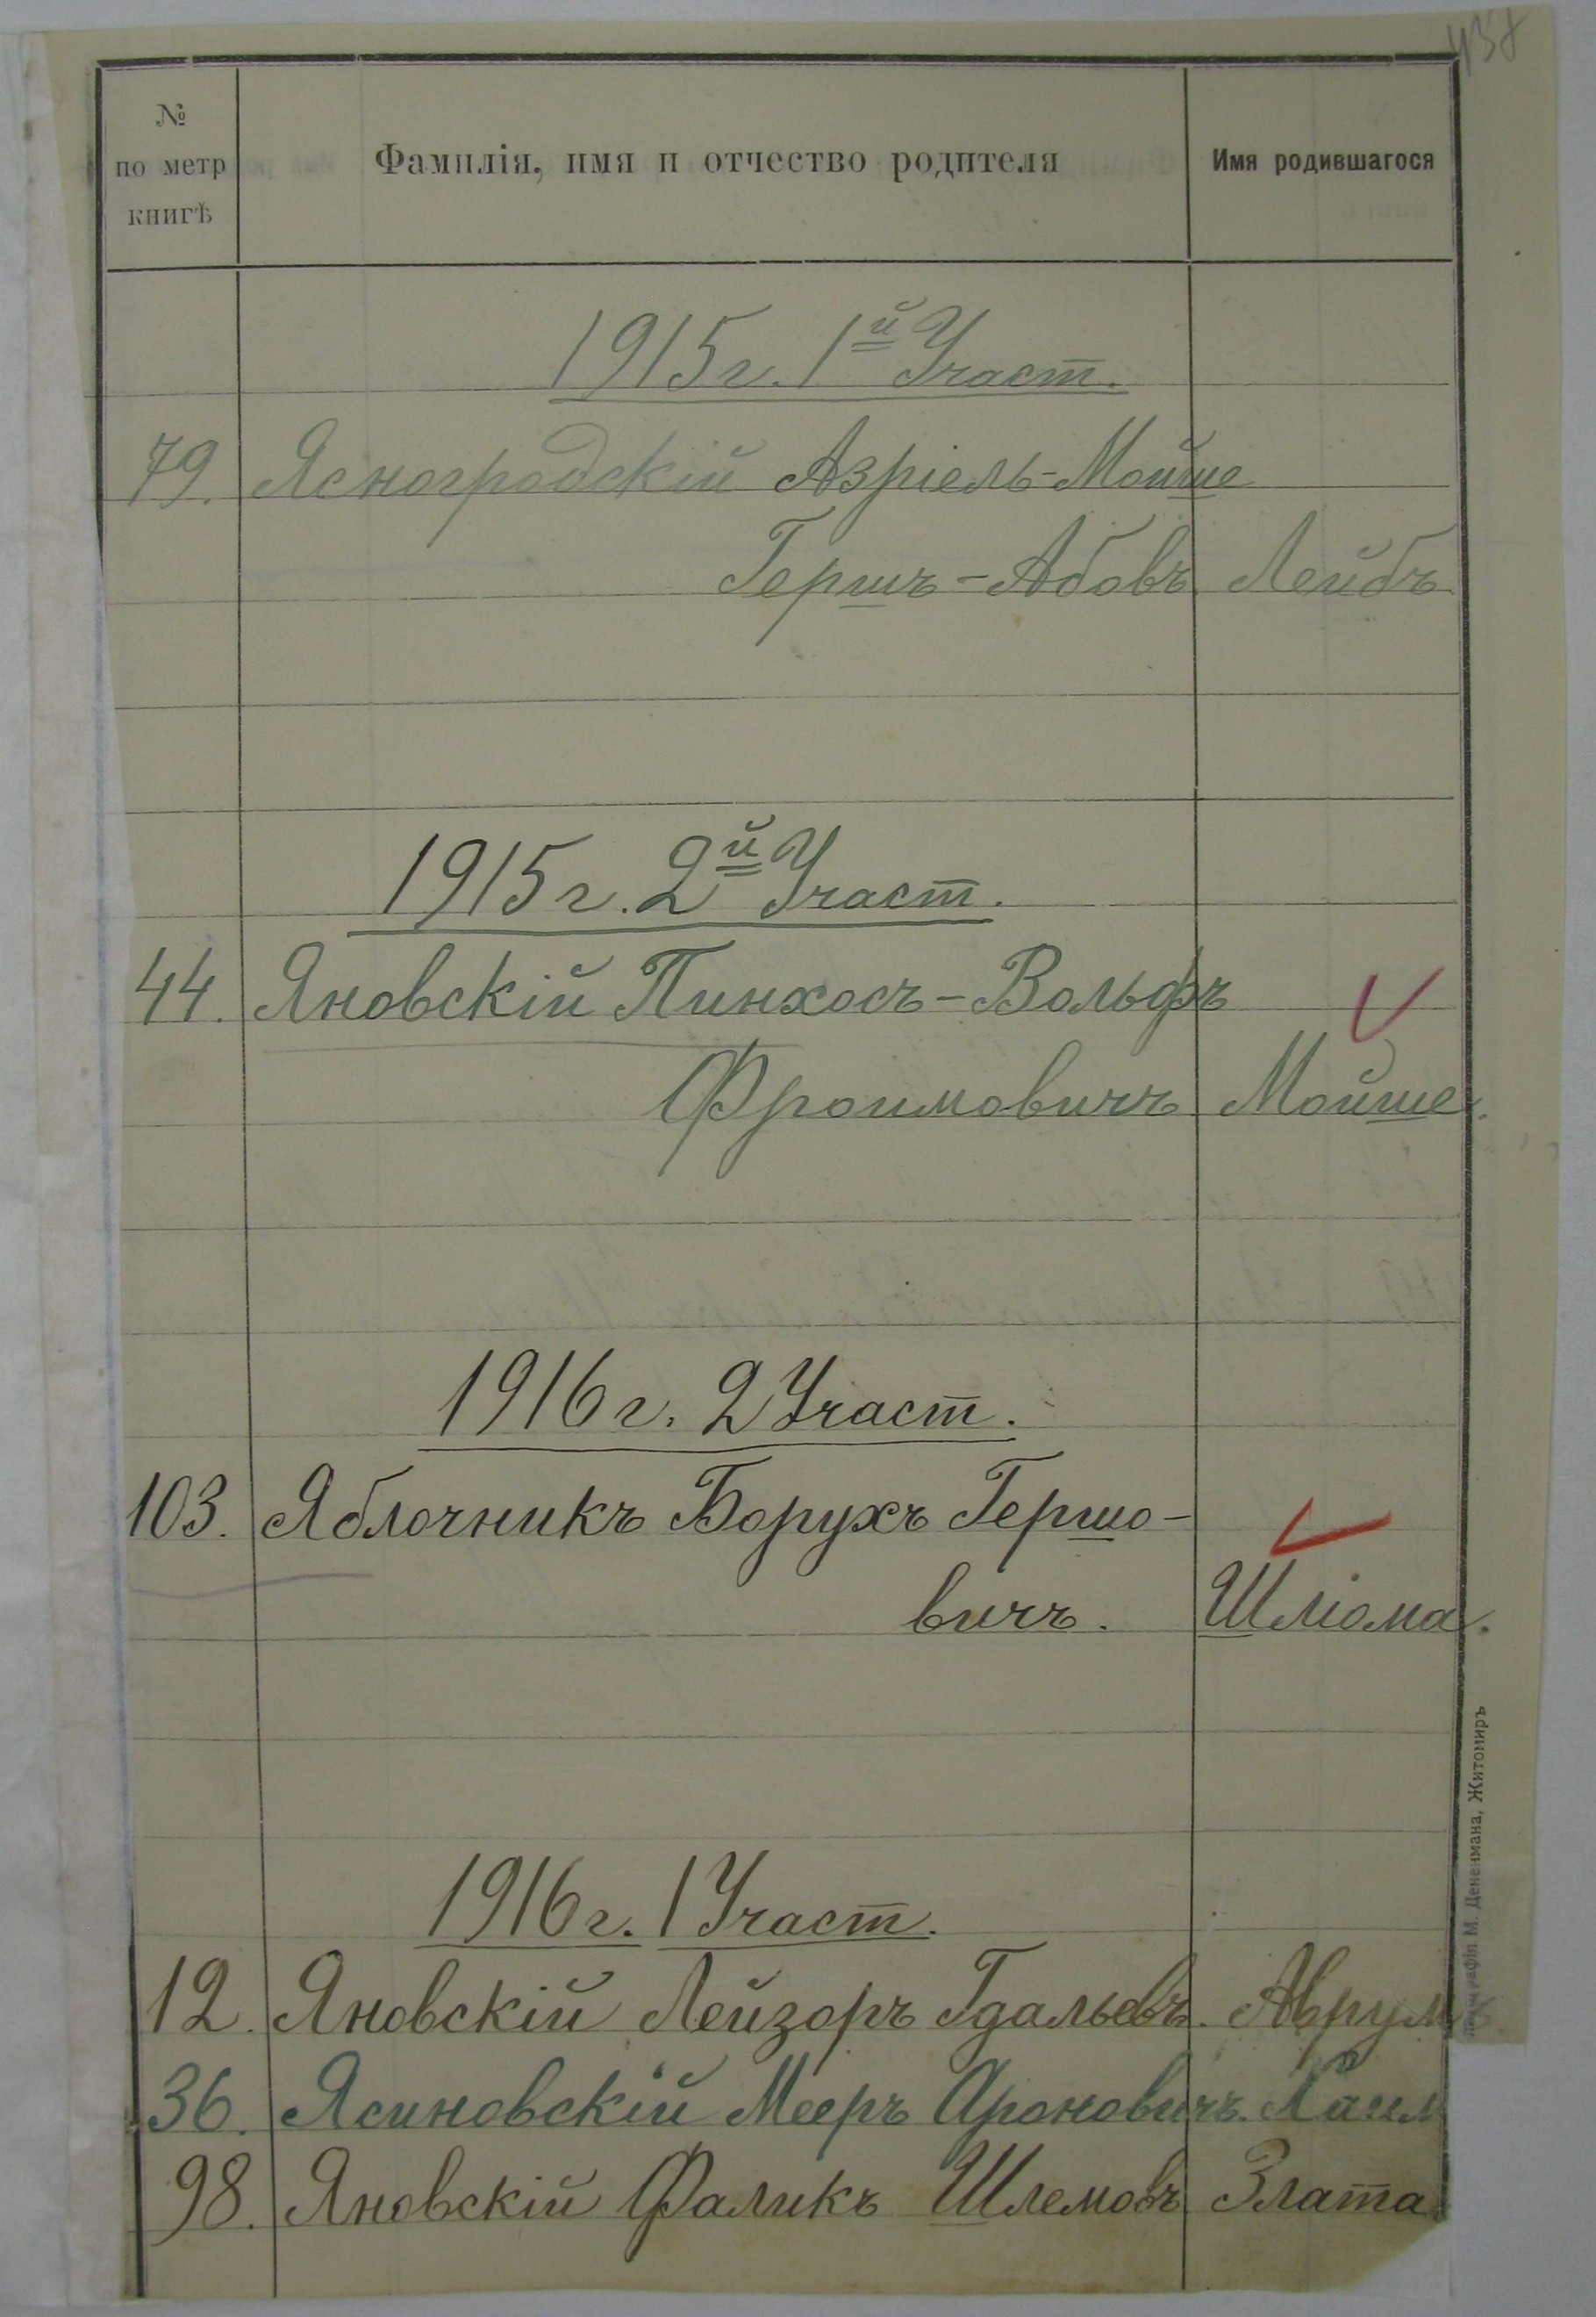 438
№
по метр
книгѣ
Фамилія, имя и отчество родителя
Имя родившагося
1915 г. 1й Участ.
79. Ясногродскій Азріель-Мойше
Гершъ-Абовъ Лейбъ
1915 г. 2й Участ.
44. Яновскій Пинхосъ-Вольфъ
Фроимовичъ Мойше.
1916 г. 2 Участ.
103. Яблочникъ Борухъ Гершо-
вичъ. Шліома.
1916 г. 1 Участ.
12. Яновскій Лейзоръ Гдальевъ. Аврум
36. Ясиновскій Мееръ Ароновичъ. Хаим
98. Яновскій Фаликъ Шлемовъ Злата
М. Дененмана, Житомиръ